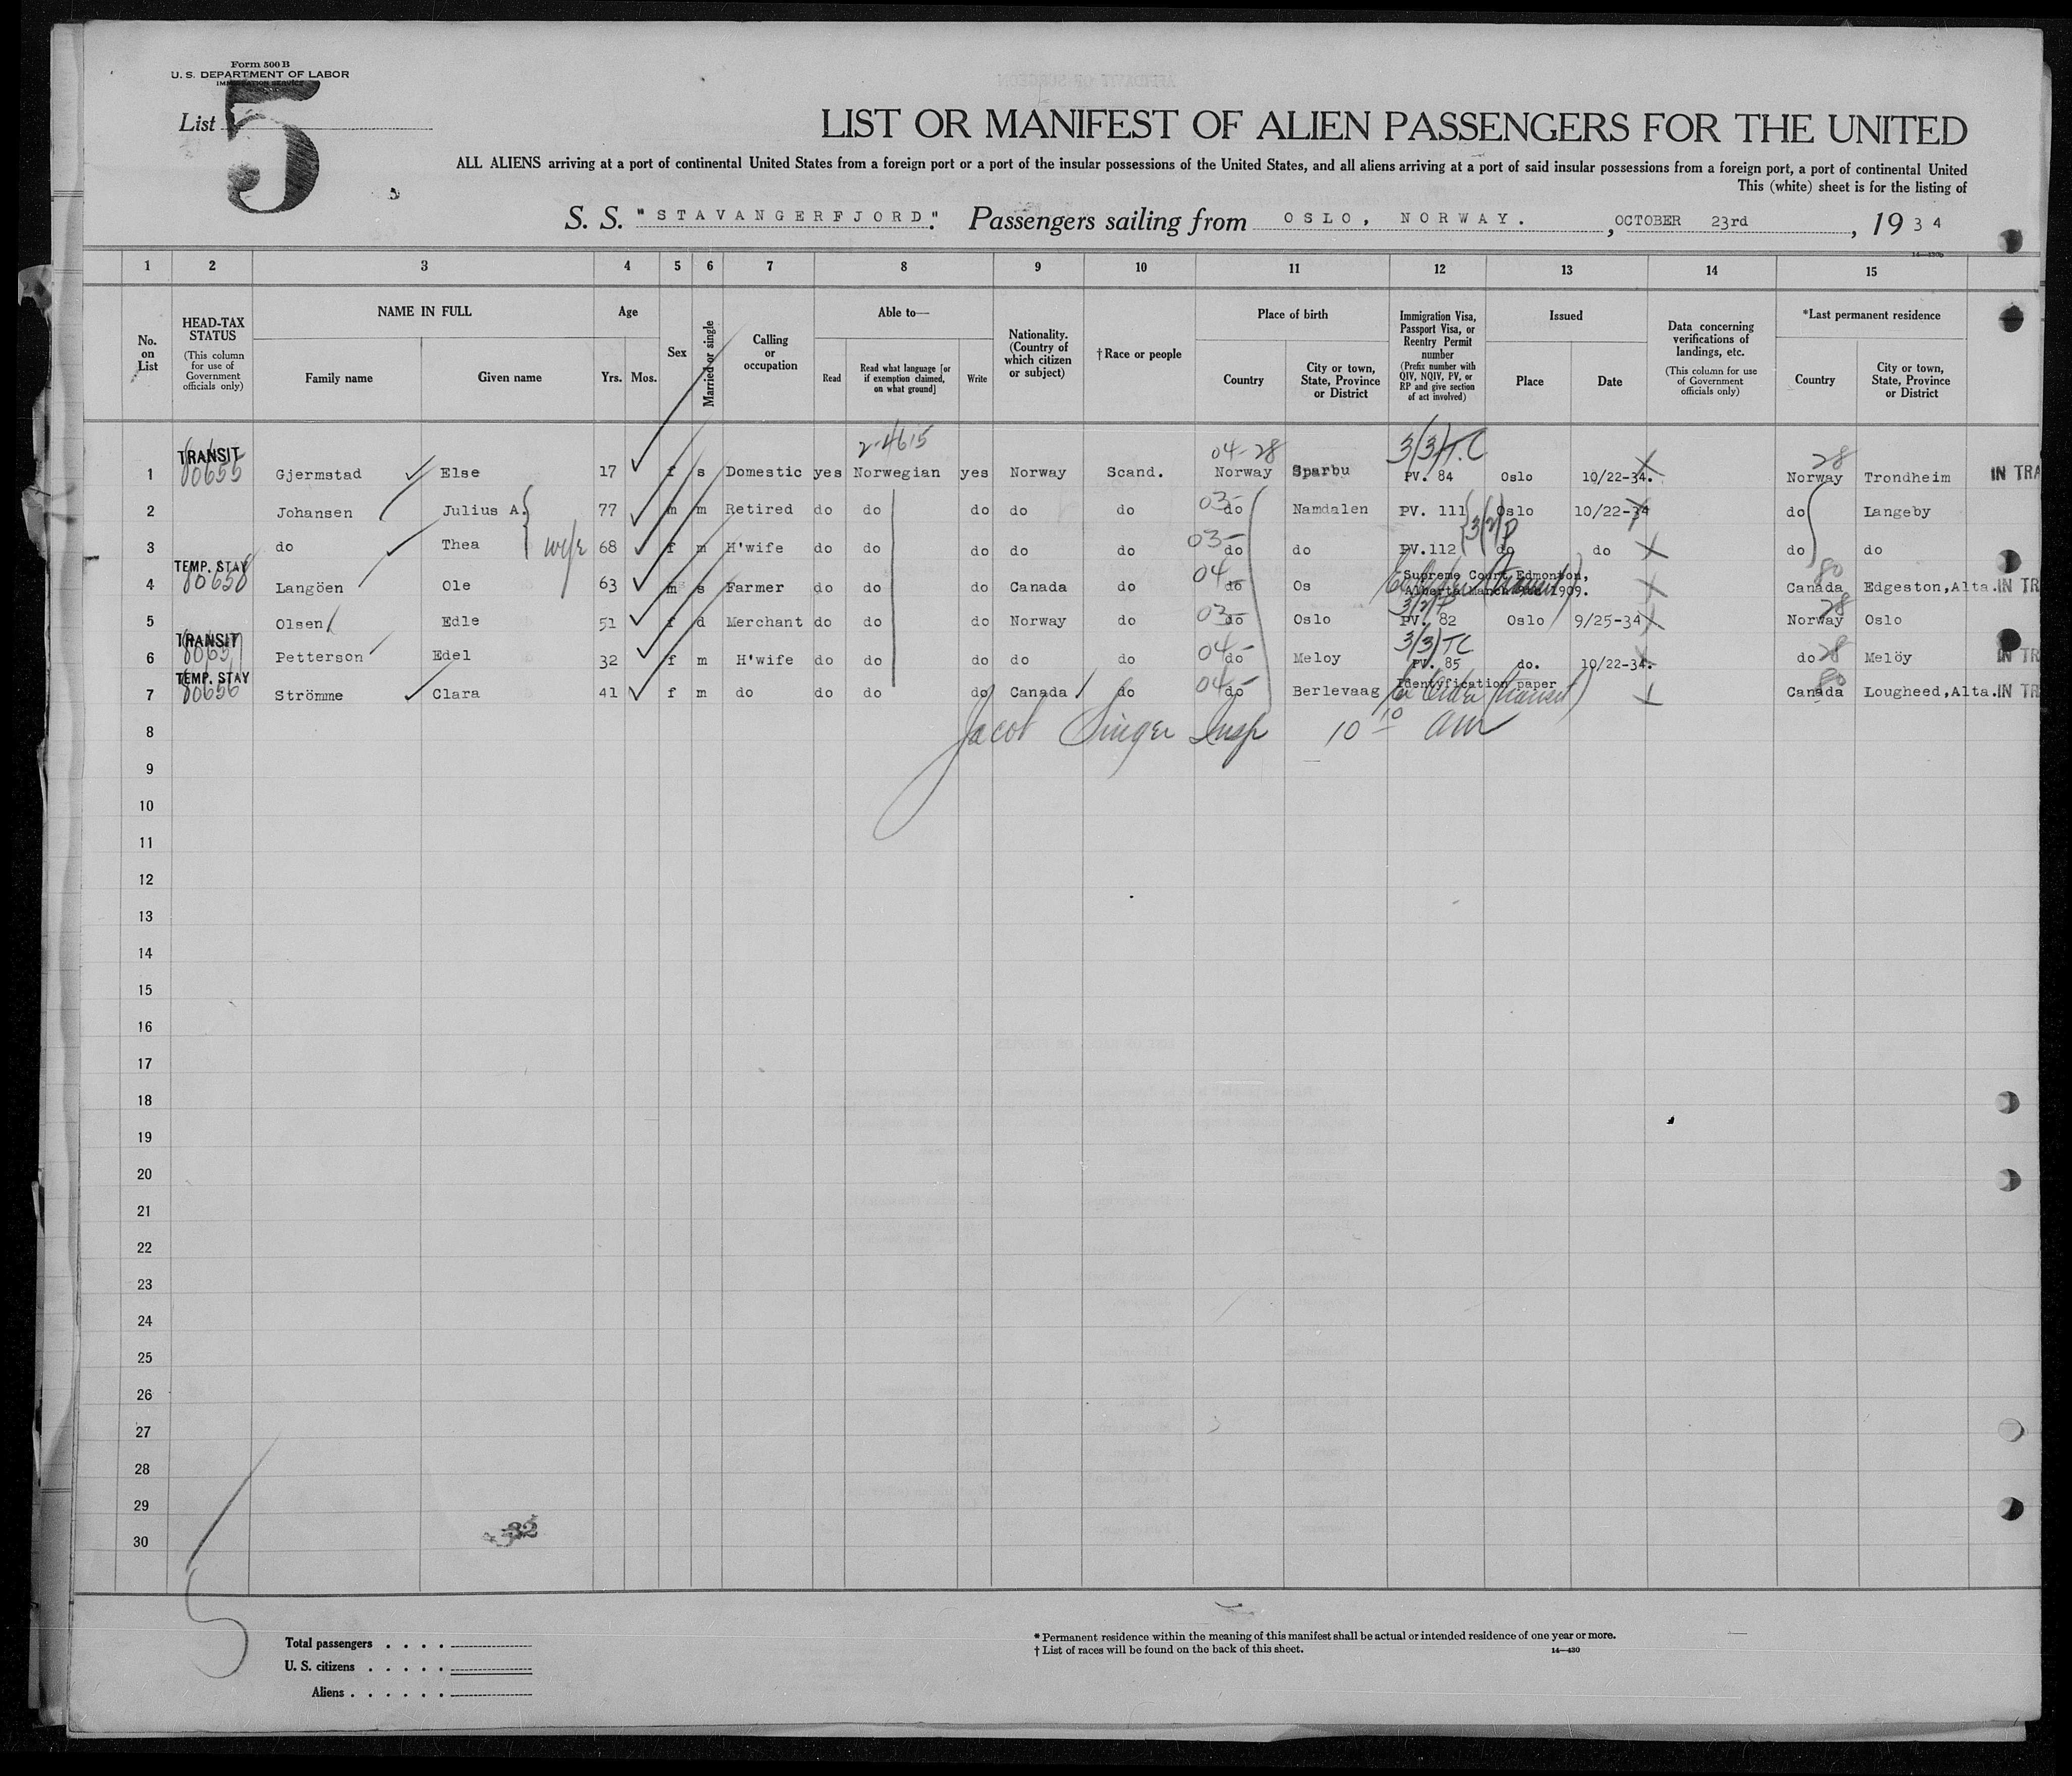 Form 500 B
U. S. DEPARTMENT OF LABOR
IMMIGRATION SERVICE
List 5
LIST OR MANIFEST OF ALIEN PASSENGERS FOR THE UNITED
ALL ALIENS arriving at a port of continental United States from a foreign port or a port of the insular possessions of the United States, and all aliens arriving at a port of said insular possessions from a foreign port, a port of continental United
This (white) sheet is for the listing of
S. S. "STAVANGERFJORD". Passengers sailing from OSLO, NORWAY. , OCTOBER 23rd , 1934
14—430b
1 2 3 4 5 6 7 8 9 10 11 12 13 14 15
No. on List
HEAD-TAX STATUS (This column for use of Government officials only)
NAME IN FULL Family name Given name
Age Yrs. Mos.
Sex
Married or single
Calling or occupation
Able to— Read Read what language [or if exemption claimed, on what ground] Write
Nationality. (Country of which citizen or subject)
†Race or people
Place of birth Country City or town, State, Province or District
Immigration Visa, Passport Visa, or Reentry Permit number (Prefix number with QIV, NQIV, PV, or RP and give section of act involved)
Issued Place Date
Data concerning verifications of landings, etc. (This column for use of Government officials only)
*Last permanent residence Country City or town, State, Province or District
2-4615 04-28 3/3/TC 28
1 TRANSIT 80655 Gjermstad Else 17 f s Domestic yes Norwegian yes Norway Scand. Norway Sparbu PV. 84 Oslo 10/22-34. Norway Trondheim IN TRA
2 Johansen Julius A. 77 m m Retired do do do do do 03- do Namdalen PV. 111 Oslo 10/22-34 do Langeby
3 do Thea wife 68 f m H'wife do do do do do 03- do do PV.112 3/2/P do do do do
4 TEMP. STAY 80658 Langöen Ole 63 m s Farmer do do do Canada do 04- do Os Supreme Court Edmonton, Alberta March 1909. 80 Canada Edgeston,Alta. IN TR
5 Olsen Edle 51 f d Merchant do do do Norway do 03- do Oslo 3/2/P PV. 82 Oslo 9/25-34 28 Norway Oslo
6 TRANSIT 80657 Petterson Edel 32 f m H'wife do do do do do 04- do Meloy 3/3/TC PV. 85 do. 10/22-34. do 28 Melöy IN TR
7 TEMP. STAY 80656 Strömme Clara 41 f m do do do do Canada do 04- do Berlevaag Identyfication paper Ex Order (transit) 80 Canada Lougheed,Alta. IN TR
8 Jacob Singer Insp 10 10 am
9
10
11
12
13
14
15
16
17
18
19
20
21
22
23
24
25
26
27
28
29
30
32
5
Total passengers . . . .
U. S. citizens . . . . .
Aliens . . . . . .
* Permanent residence within the meaning of this manifest shall be actual or intended residence of one year or more.
† List of races will be found on the back of this sheet.
14—430